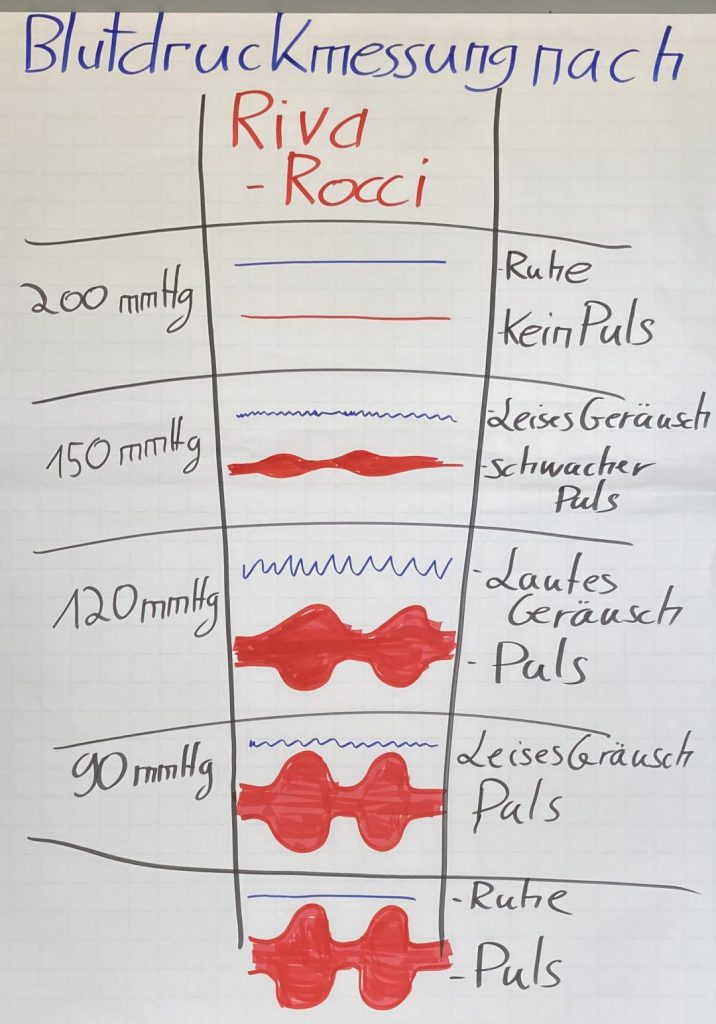 Blutdruckmessung nach
Riva
- Rocci
200 mmHg
- Ruhe
Kein Puls
150 mmHg
- Leises Geräusch
- schwacher
Puls
120 mmHg
- Lautes
Geräusch
- Puls
90 mmHg
Leises Gräusch
Puls
- Ruhe
- Puls